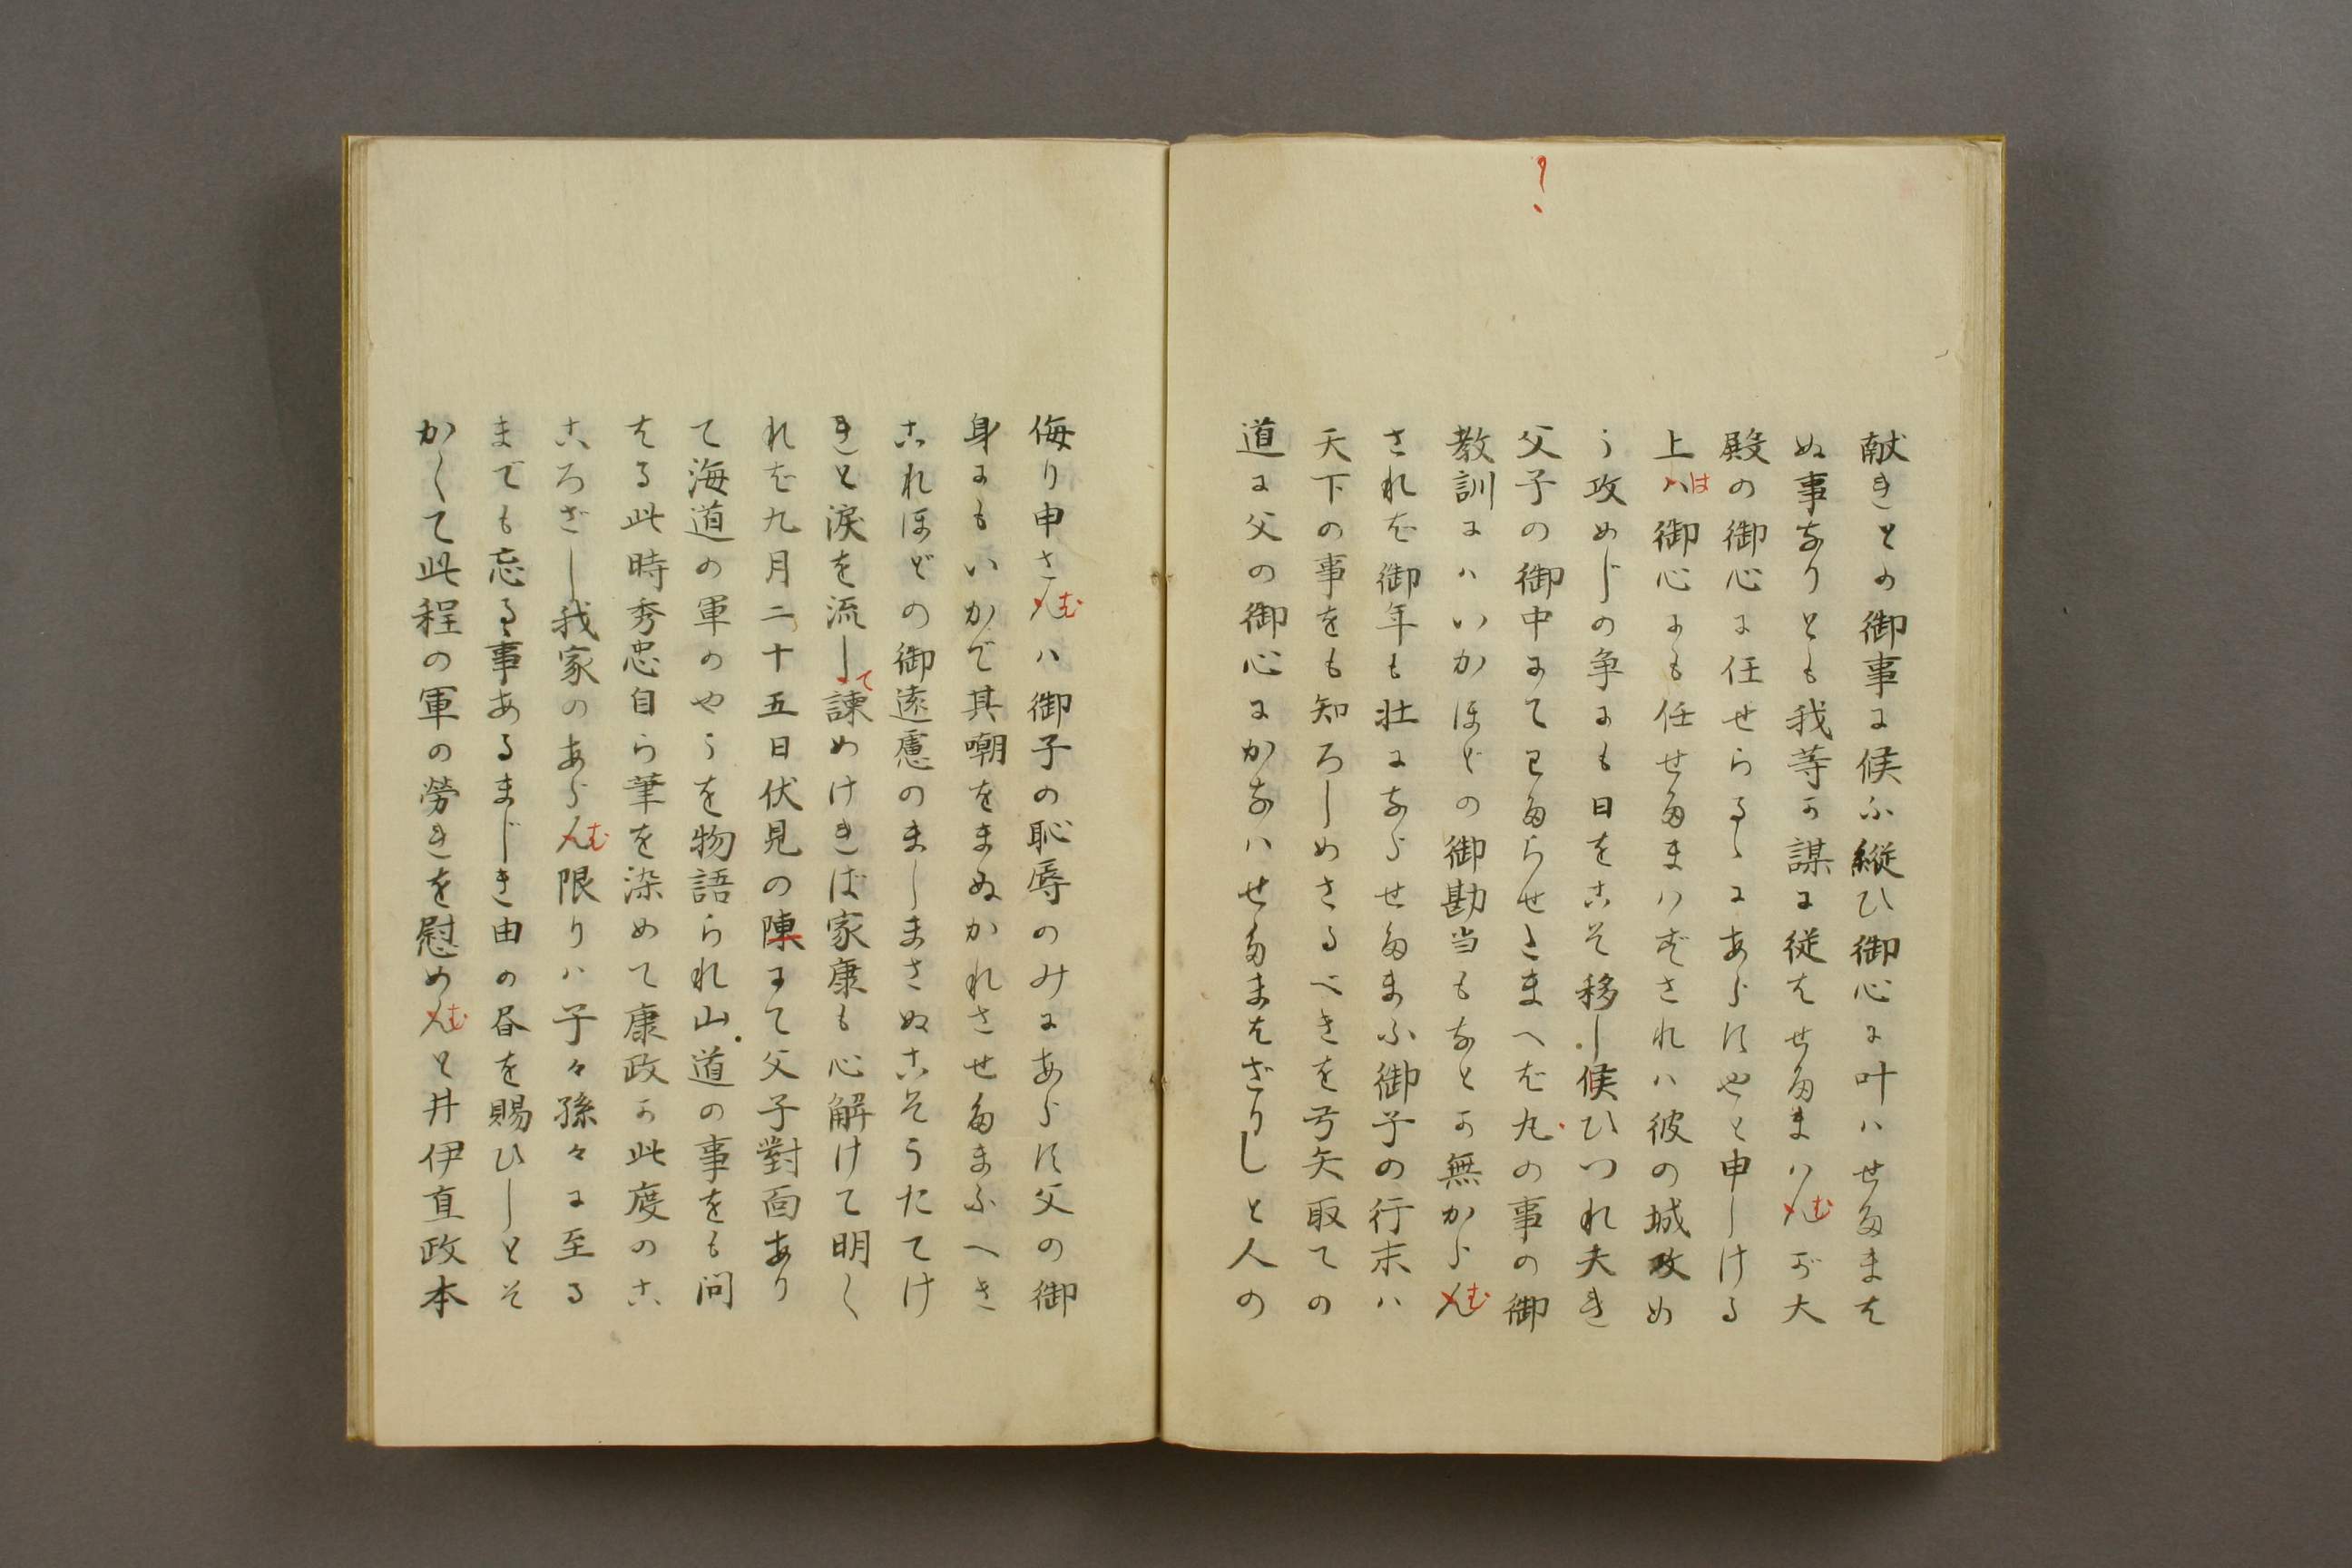 献きとの御事に候ふ縦ひ御心に叶ハせたまは
ぬ事なりとも我等か謀に従はせたまハんむが大
殿の御心に任せらるゝにあらにやと申しける
上ハは御心にも任せたまハずされハ彼の城攻め
う攻めじの争にも日をこそ移し候ひつれ夫き
父子の御中にてわたらせたまへば九の事の御
教訓にハいかほどの御勘当もなとか無からんむ
されば御年も壮にならせたまふ御子の行末ハ
天下の事をも知ろしめさるべきを弓矢取ての
道に父の御心にかなハせたまはざりしと人の
侮り申さんむハ御子の恥辱のみにあらに父の御
身にもいかで其嘲をまぬかれさせたまふへき
これほどの御遠慮のましまさぬこそうたてけ
きと涙を流して諫めけきば家康も心解けて明く
れば九月二十五日伏見の陳にて父子對面あり
て海道の軍のやうを物語られ山道の事をも問
はる此時秀忠自ら筆を染めて康政か此度のこ
ころざし我家のあらんむ限りハ子々孫々に至る
までも忘るゝ事あるまじき由の昼を賜ひしとそ
かくて此程の軍の勞きを慰めんむと井伊直政本